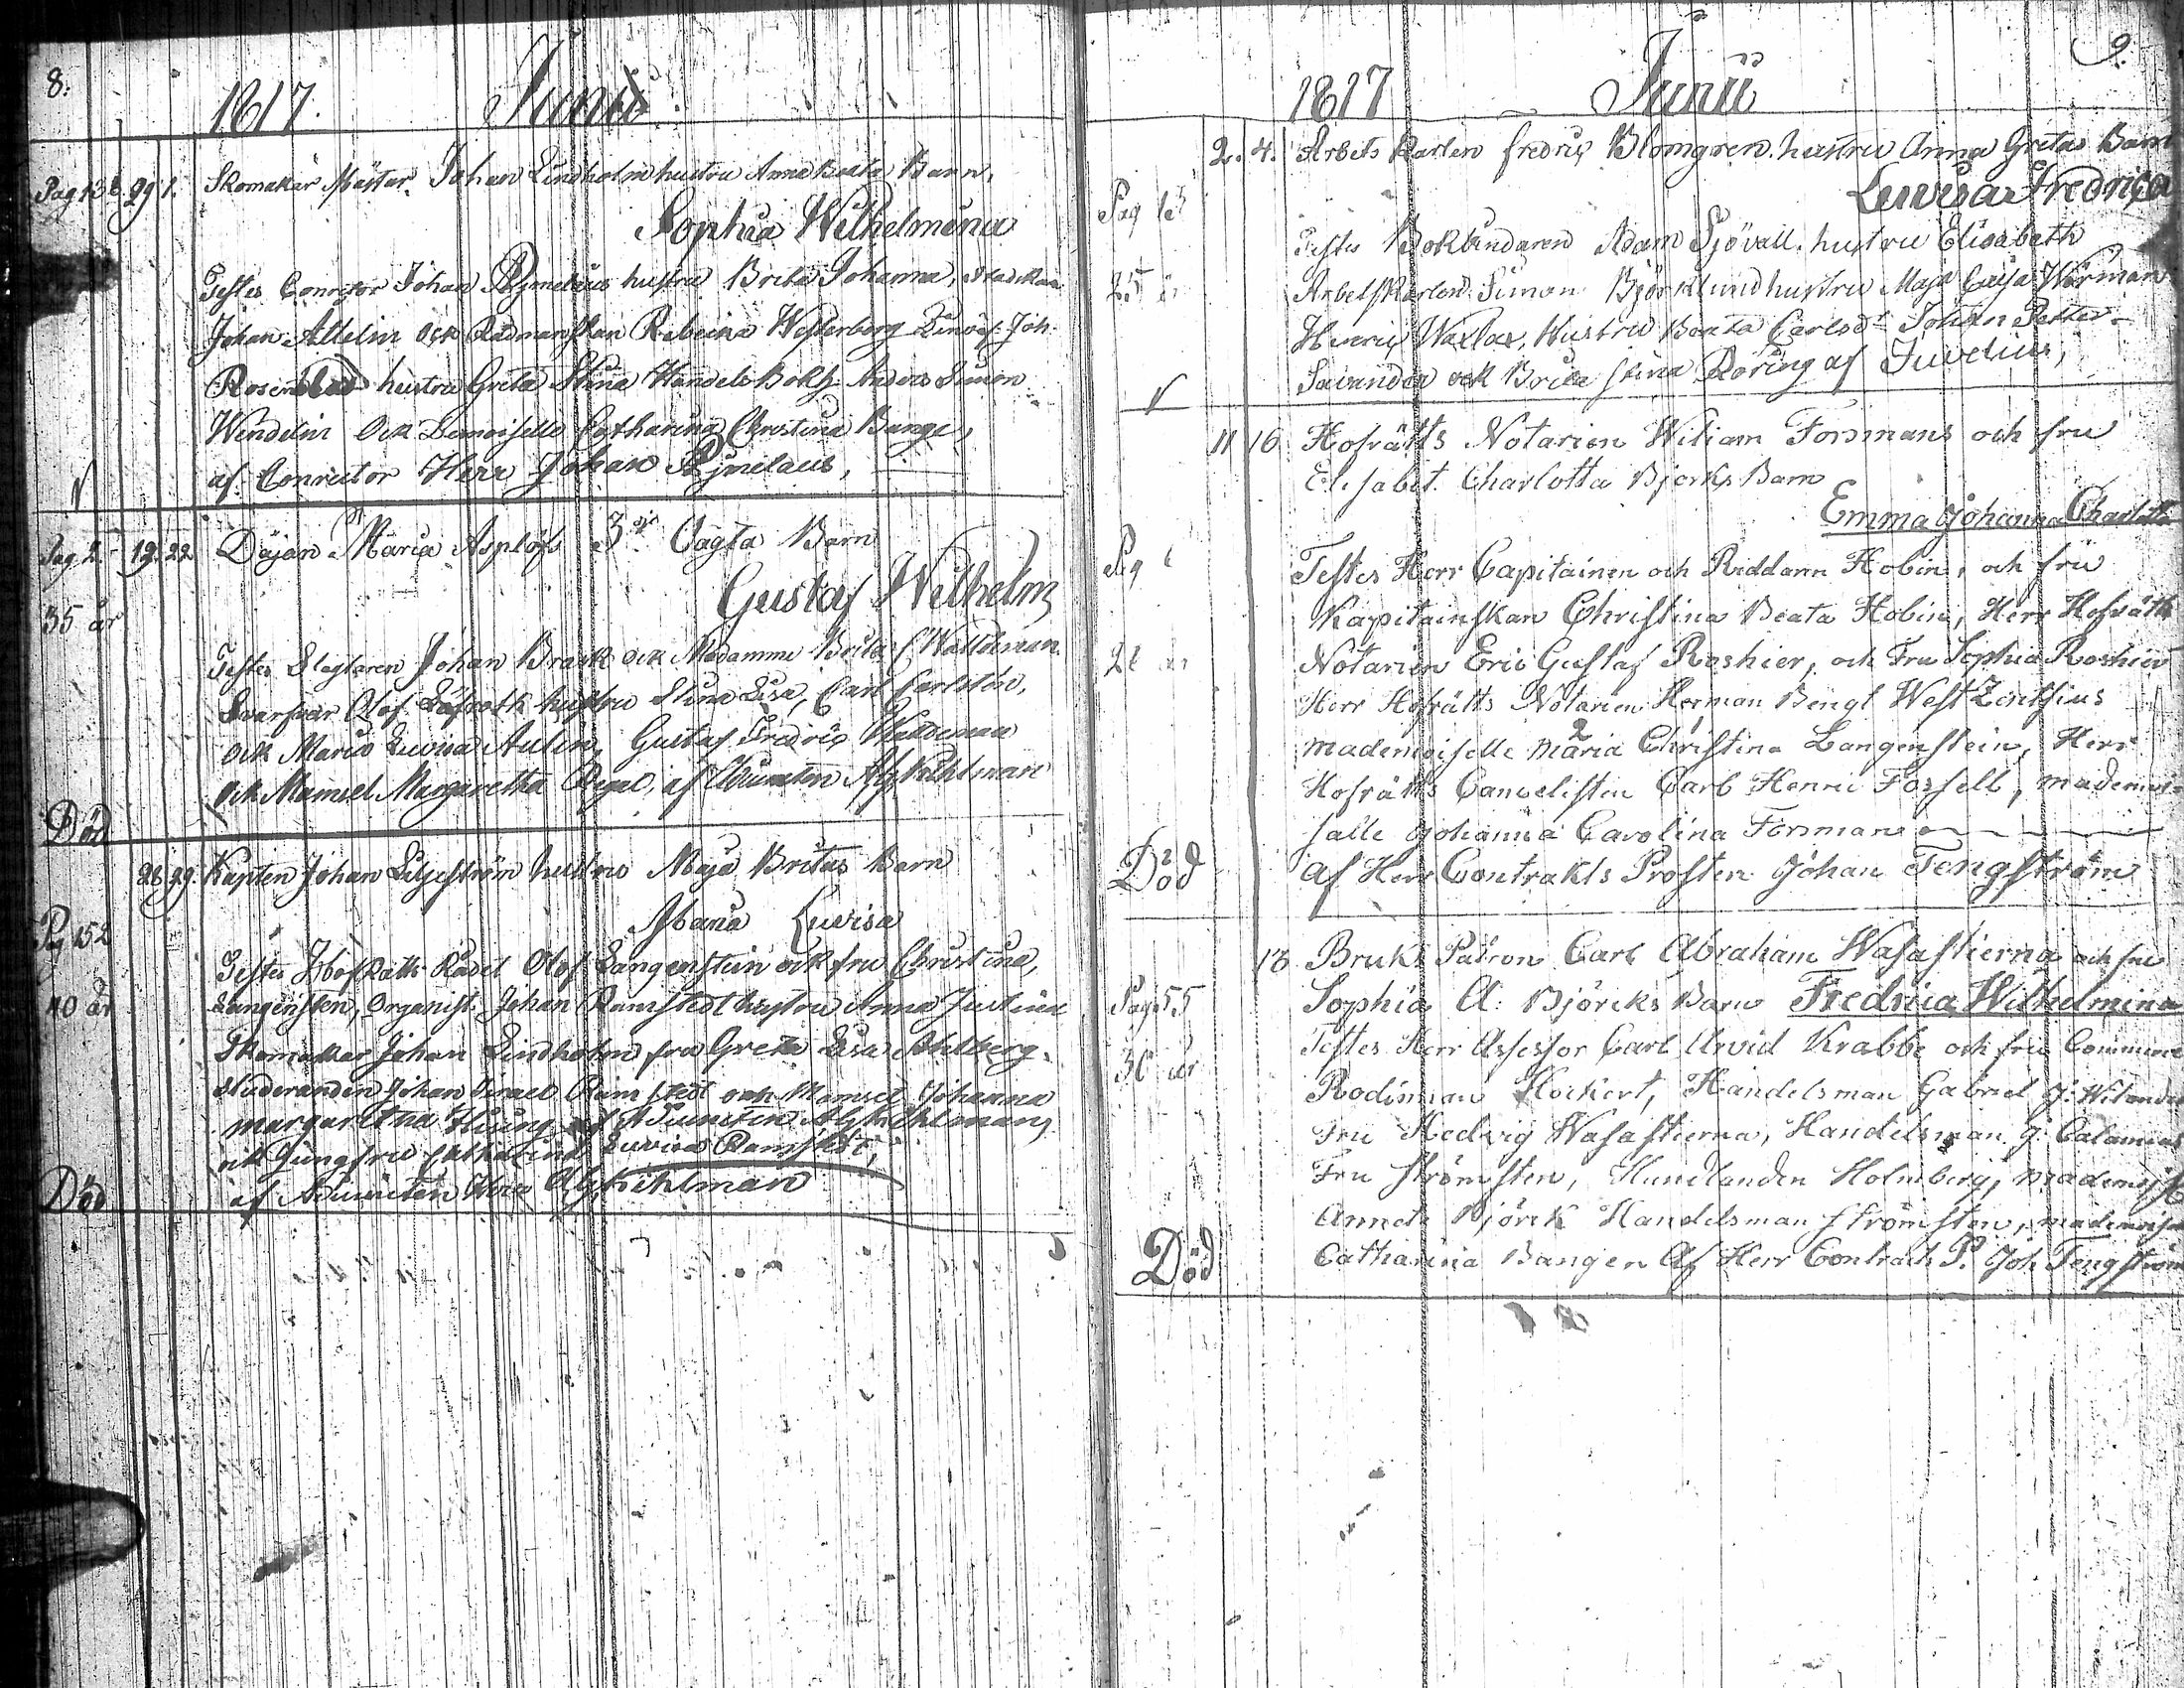 8:
1817. Junii
Pag 138 29 1. Skomakar Mästar Johan Lindholm hustru Anna Beata Barn,
Sophia Wilhelmina
Testes Conrector Johan hustru Brita Johanna,
Johan Attelin ock Rådmanskan Rebecka Westerberg Joh:
hustru Greta Stina Handels Bokh. Anders Simon
Wendelin Ock Demoiselle Catharina Christina Bange,
af Conrector Herr Johan
Pag 2. 19. 22 Däjan Maria Asplöfs 3die Oägta Barn
Gustaf Wilhelm
35 år
Testes Slagtaren Johan Brask ock Madamme Brita C Walldeman
Svarfvar Olof Löfroth hustru Stina Lisa, Carl Carlston,
ock Maria Luvisa Aulin, Gustaf Fredric Walldeman
ock Mamsel Margaretha af Adiuncten Alg. Kihlman
Död
28 29. Kapten Johan Liljeström hustru Maja Britas Barn
Maria Luvisa
Pag 152
Testes Hof Rätts Rådet Olof Langenstein ock fru Christina,
40 år
Langensten, Organist Johan Ramstedt hustru Anna Justina
Skomakar Johan Lindholm fru Greta Lisa Ahlberg.
Studeranden Johan Israel Ramstedt och Mamsel Johanna
margaretha Hising af Adiuncten Alg Kihlman,
ock Jungfru Catharina Luvisa Ramstedt,
af Adiuncten Herr Alg. Kihlman
Död
9.
1817 Junii
2. 4. Arbets Karlen Fredric Blomgren. hustru Anna Gretas Barn
Luvisa Fredrica
Pag 13
Testes Bokbindaren Adam Sjövall. hustru Elisabeth
25 år
Arbets Karlen Simon Björklund hustru Maja Caisa Wörman
Henric Waxlax, Hustru Beata Carlsdr Johan Petter
Savander ock Brita Stina Röring af Juvelius,
11 16 Hofrätts Notarien Wiliam Forsmans och fru
Elisabet Charlotta Bjorks Barn
Emma Johanna Charlotta
Pag
Testes Herr Capitainen och Riddarn Hobin, och fru
Kapitainskan Christina Beata Hobin, Herr Hofrätts
Notarien Eric Gustaf Roshier, och Fru Sophia Roshier
Herr Hofrätts Notarien Herman Bengt West
mademoiselle maria Christina Langenstein, Herr
Hofrätts Cancelisten Carl Henric Forsell, mademoi-
selle Johanna Carolina Forsman
Död
af Herr Contrakts Prosten Johan Tengström
18 Bruks Patron Carl Abraham Wasastierna och fru
Pag 55
Sophia A: Björcks Barn Fredrica Wilhelmina
Testes Herr Assessor Carl Arvid Krabbe och fru Commerce
30 år
Hockert, Handelsman Gabriel J: Wilander
Fru Hedvig Wasastierna, Handelsman J: Calamnius
Fru Strömsten, Holmberg, mademoisel
Annete Björck Handelsman Strömsten, mademoisel
Catharina Bangen Af Herr Contrachts P. Joh Tengström
Död